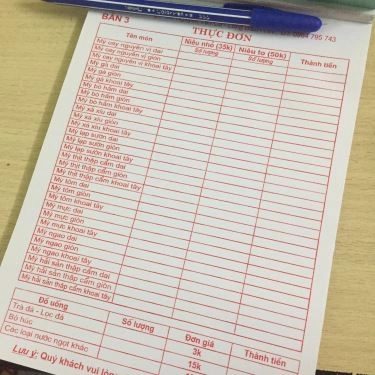 BÀN 3
THỰC ĐƠN
0964 795 743
Tên món
Niêu nhỏ (35k)
Số lượng
Niêu to (50k)
Số lượng
Thành tiền
Mỳ cay nguyên vị dai
Mỳ cay nguyên vị giòn
Mỳ cay nguyên vị khoai tây
Mỳ gà dai
Mỳ gà giòn
Mỳ gà khoai tây
Mỳ bò hầm dai
Mỳ bò hầm giòn
Mỳ bò hầm khoai tây
Mỳ xá xíu dai
Mỳ xá xíu giòn
Mỳ xá xíu khoai tây
Mỳ lạp sườn dai
Mỳ lạp sườn giòn
Mỳ lạp sườn khoai tây
Mỳ thịt thập cẩm dai
Mỳ thịt thập cẩm giòn
Mỳ thịt thập cẩm khoai tây
Mỳ tôm dai
Mỳ tôm giòn
Mỳ tôm khoai tây
Mỳ mực giòn
Mỳ mực khoai tây
Mỳ ngao dai
Mỳ ngao giòn
Mỳ ngao khoai tây
Mỳ hải sản thập cẩm dai
Mỳ hải sản thập cẩm giòn
Mỳ hải sản thập cẩm khoai tây
Đồ uống
Số lượng
Đơn giá
Thành tiền
Trà đá - Lọc đá
3k
Bò húc
15k
Các loại nước ngọt khác
Lưu ý: Quý khách vui